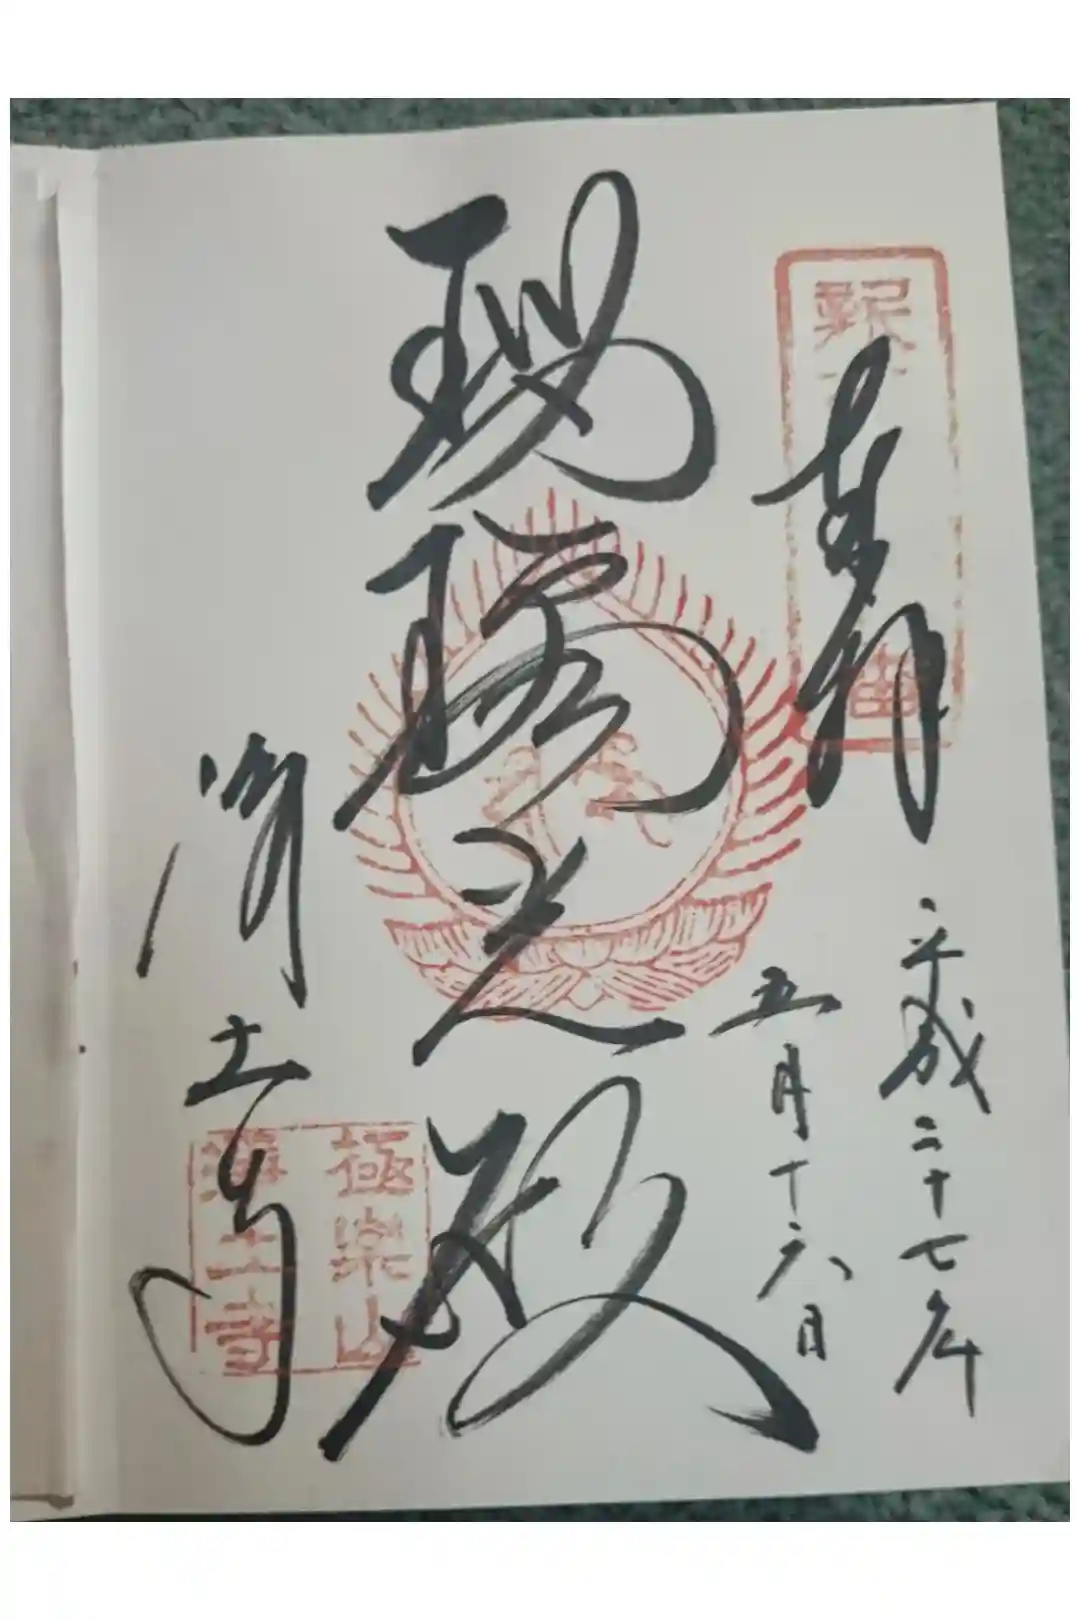 奉拝
平成二十七年
五月十六日
瑠璃光殿
浄土寺
極樂山
淨土寺